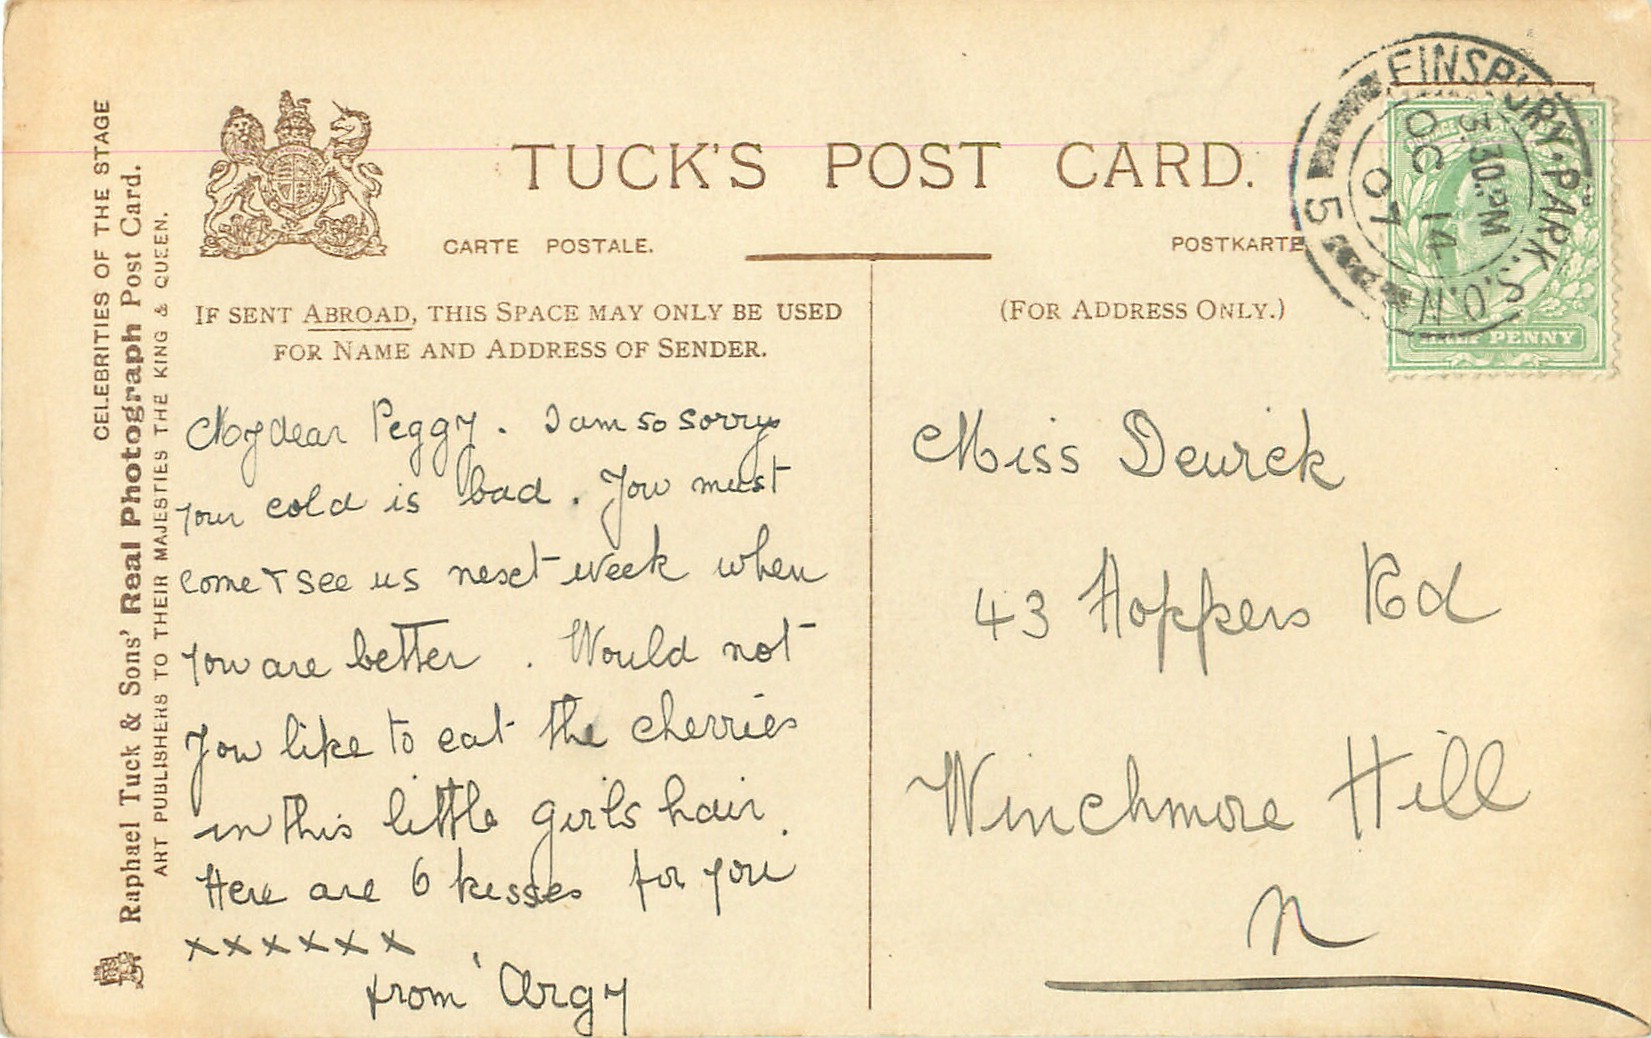 CELEBRITIES OF THE STAGE
Raphael Tuck & Sons' Real Photograph Post Card.
ART PUBLISHERS TO THEIR MAJESTIES THE KING & QUEEN.
TUCK'S POST CARD.
CARTE POSTALE.
POSTKARTE
IF SENT ABROAD, THIS SPACE MAY ONLY BE USED
FOR NAME AND ADDRESS OF SENDER.
(FOR ADDRESS ONLY.)
FINSBURY·PARK.S.O.N
3.30.PM
OC 14
07
5
HALF PENNY
My dear Peggy. I am so sorry
your cold is bad. You must
come & see us next week when
you are better. Would not
you like to eat the cherries
in this little girls hair.
Here are 6 kisses for you
x x x x x x
from Argy
Miss Dewick
43 Hoppers Rd
Winchmore Hill
N